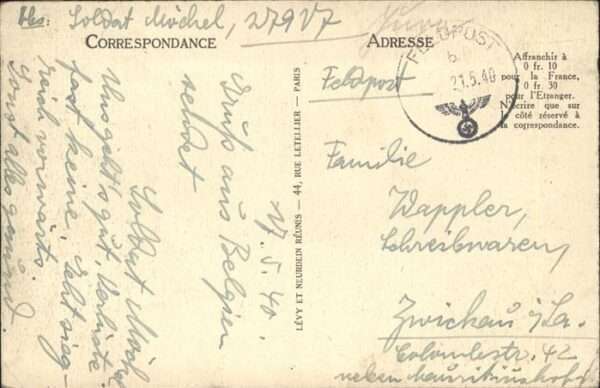 Abs: Soldat Möckel, 27917
CORRESPONDANCE
ADRESSE
Affranchir à
0 fr. 10
pour la France,
0 fr. 30
pour l'Etranger.
N'écrire que sur
le côté réservé à
la correspondance.
FELDPOST
b
21.5.40
Feldpost
LÉVY ET NEURDEIN RÉUNIS — 44, RUE LETELLIER — PARIS
17.5.40.
Gruß aus Belgien
sendet
Soldat Möckel
Uns geht's gut, Verluste
fast keine. Geht sieg-
reich vorwärts.
Sonst alles gesund.
Familie
Wappler,
Schreibwaren,
Zwickau i/Sa.
42
neben Mauritiushof